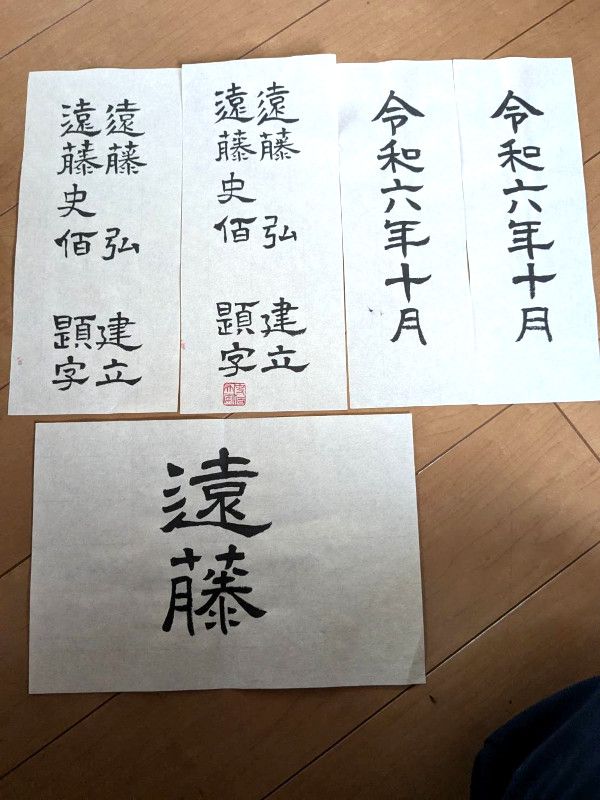 遠藤 弘 建立
遠藤史佰 題字
遠藤 弘 建立
遠藤史佰 題字
令和六年十月
令和六年十月
遠藤